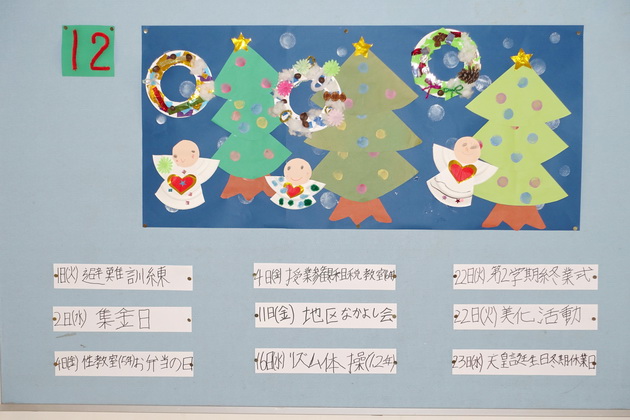 12
1日(火)避難訓練
2日(水) 集金日
4日(金)性教室(5年)お弁当の日
4日(金)授業参観租税教室(6年)
11日(金) 地区なかよし会
16日(水)リズム体操(1.2年)
22日(火)第2学期終業式
22日(火)美化活動
23日(水)天皇誕生日冬期休業日